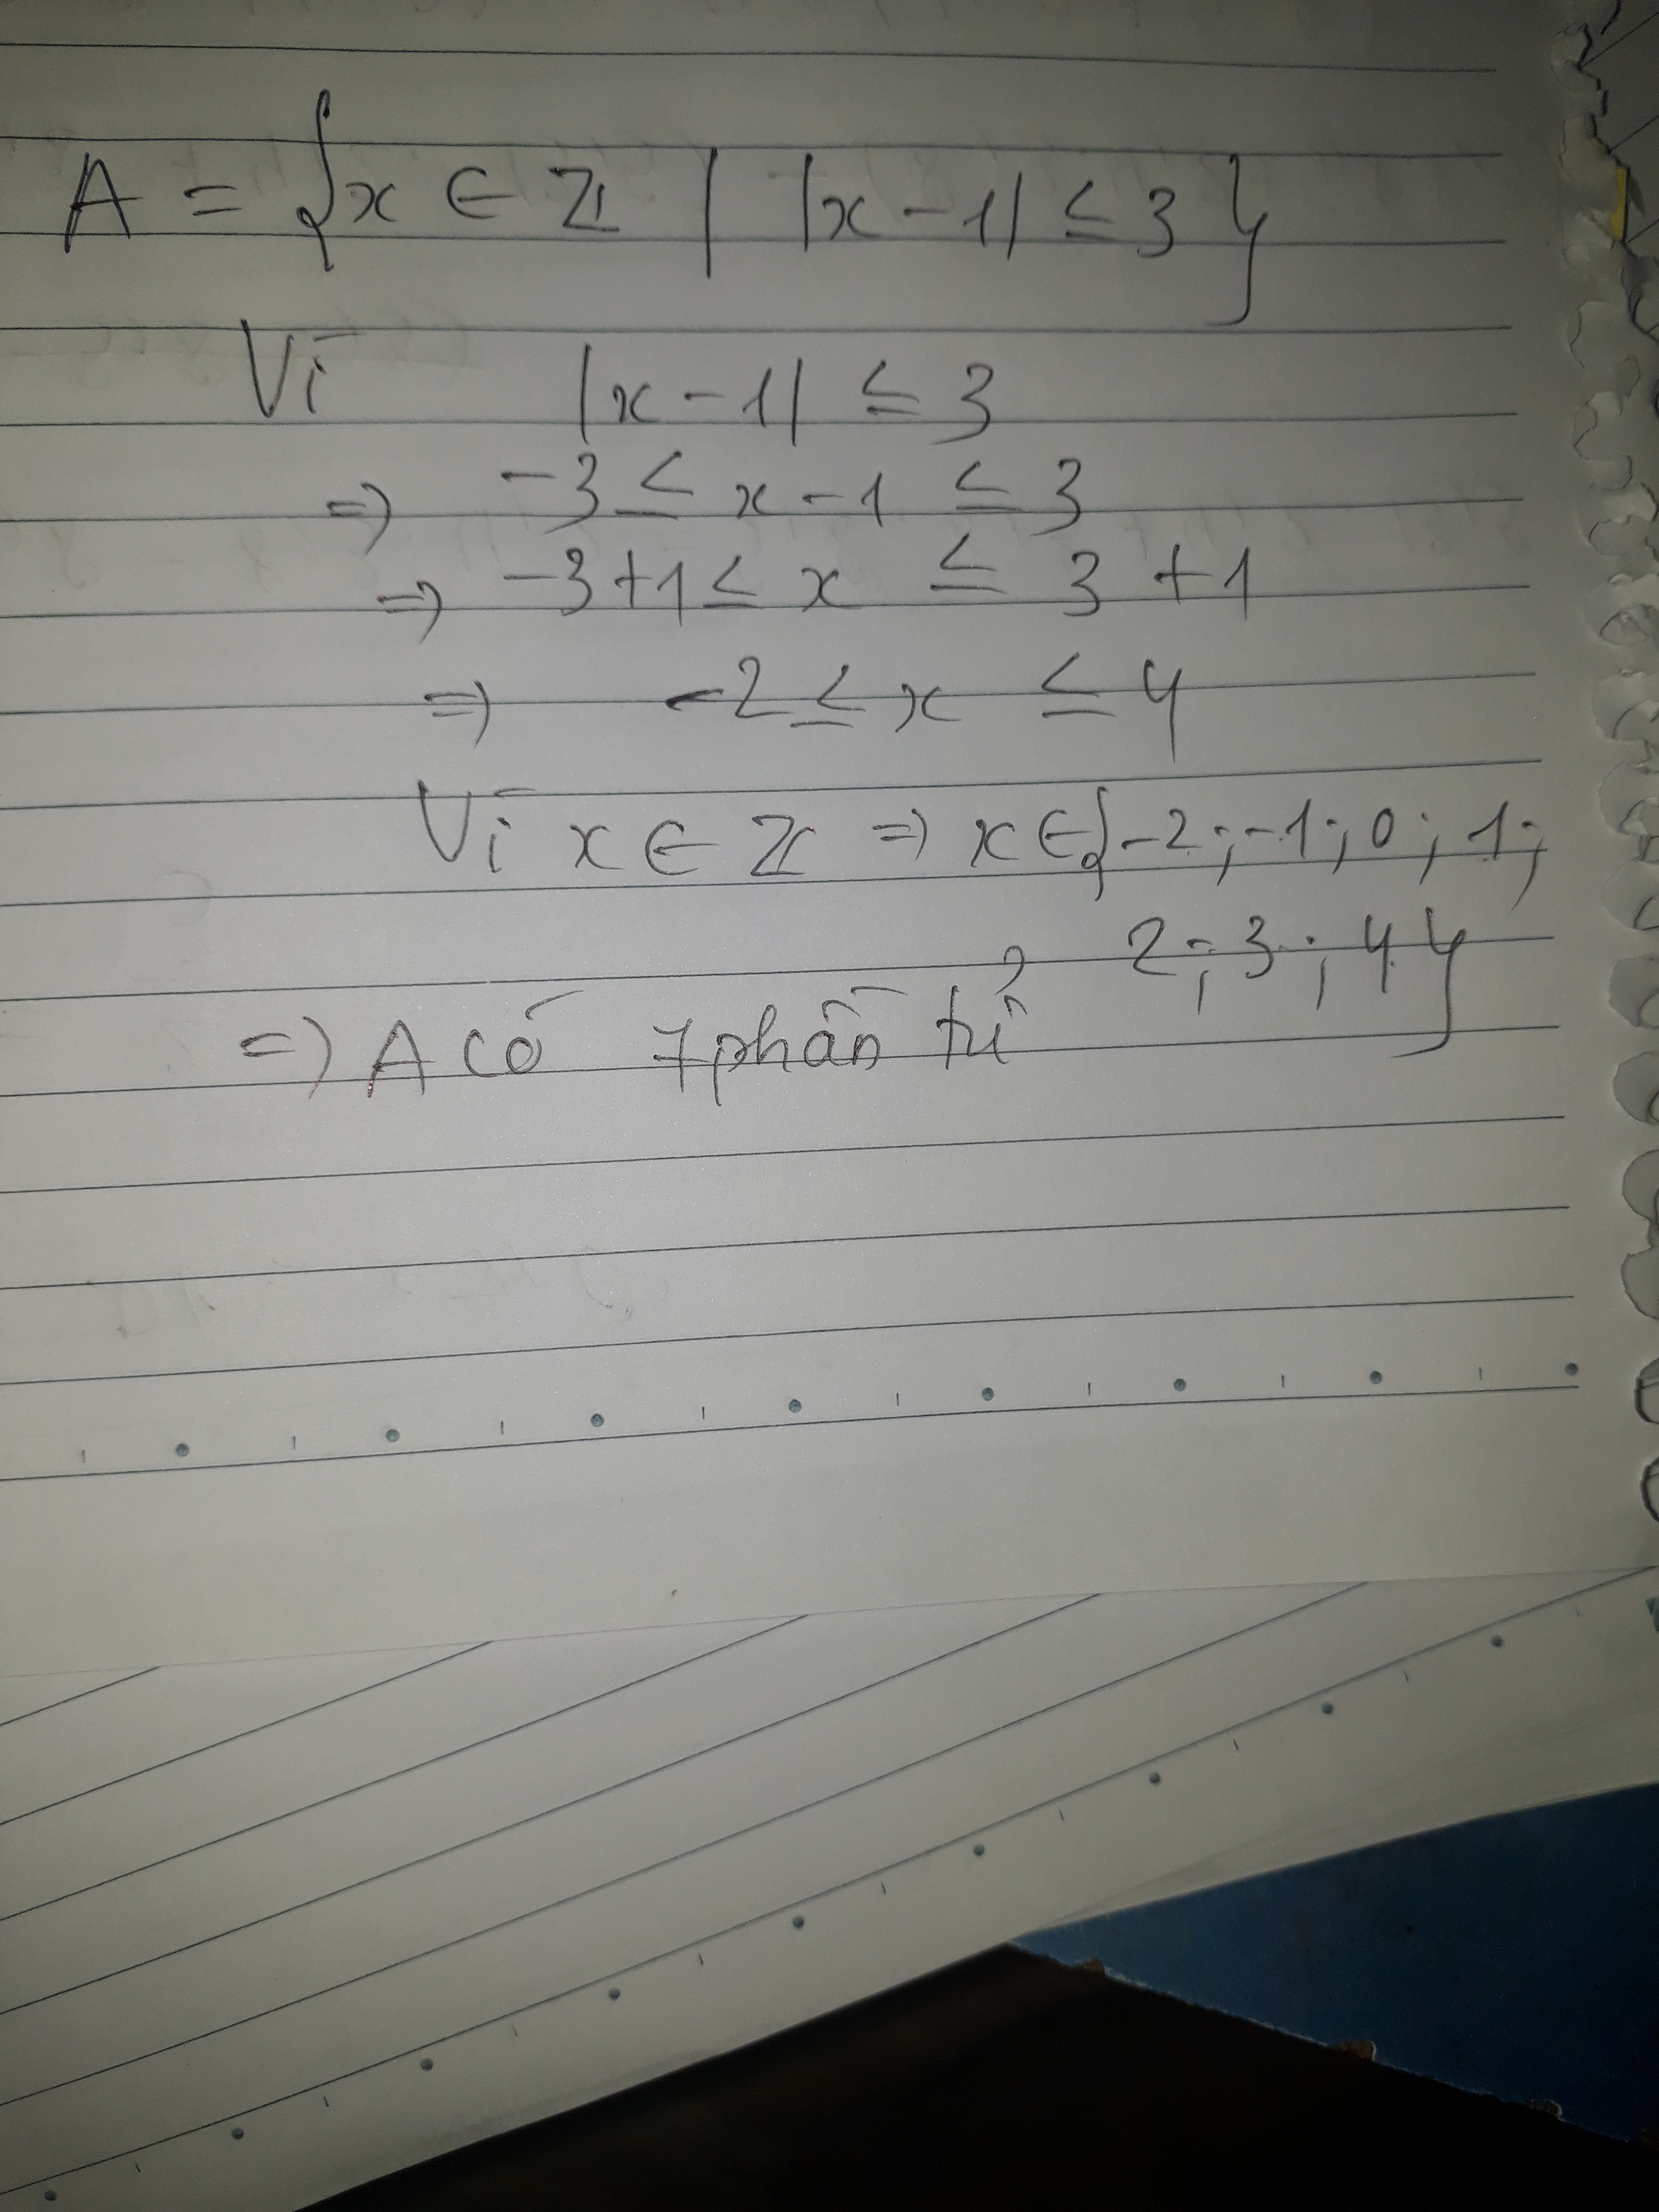 A = {x ∈ ℤ | |x - 1| ≤ 3}
Vì |x - 1| ≤ 3
=> -3 ≤ x - 1 ≤ 3
=> -3+1 ≤ x ≤ 3 + 1
=> -2 ≤ x ≤ 4
Vì x ∈ ℤ => x ∈ {-2 ; -1 ; 0 ; 1 ;
2 ; 3 ; 4}
=> A có 7 phần tử